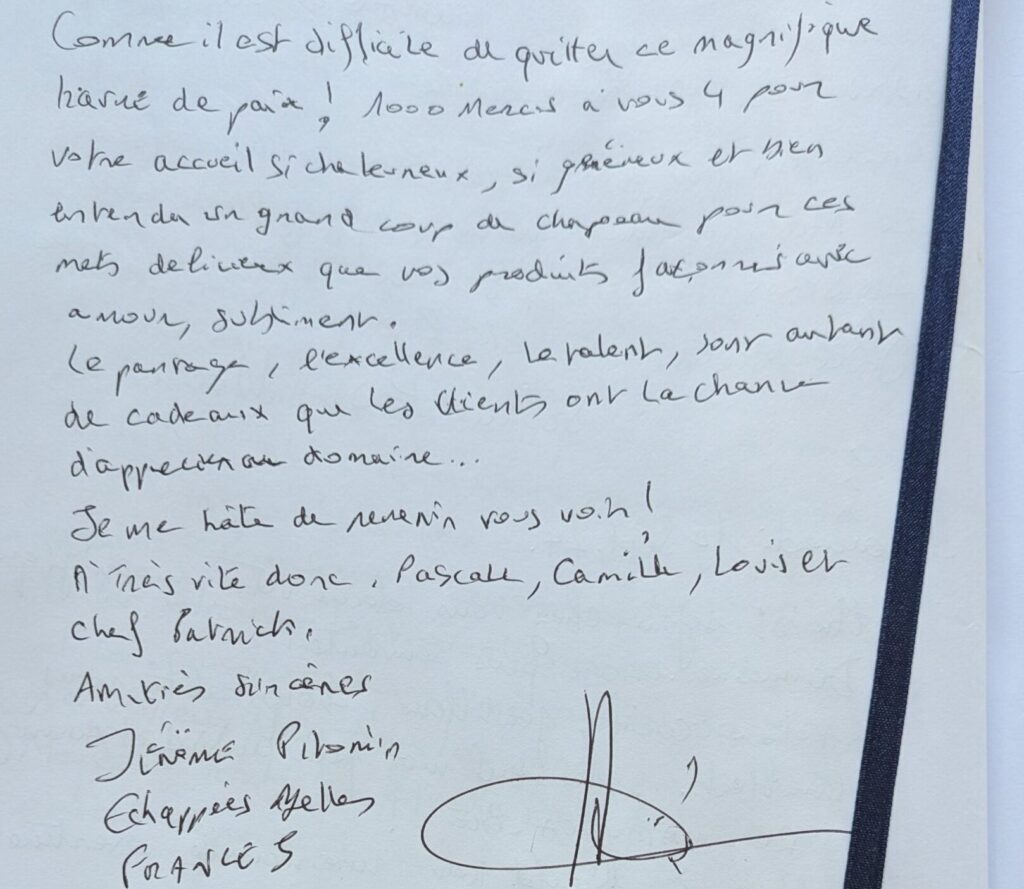 Comme il est difficile de quitter ce magnifique
havre de paix! 1000 Mercis à vous 4 pour
votre accueil si chaleureux, si généreux et bien
entendu un grand coup de chapeau pour ces
mets delicieux que vos produits façonnés avec
amour, subliment.
Le partage, l'excellence, le talent, sont autant
de cadeaux que les clients ont la chance
d'apprecier au domaine...
Je me hâte de revenir vous voir!
A Très vite donc, Pascale, Camille, Louis et
chef Patrick.
Amitiés sincères
Jérôme
Echappées Belles
FRANCE 5